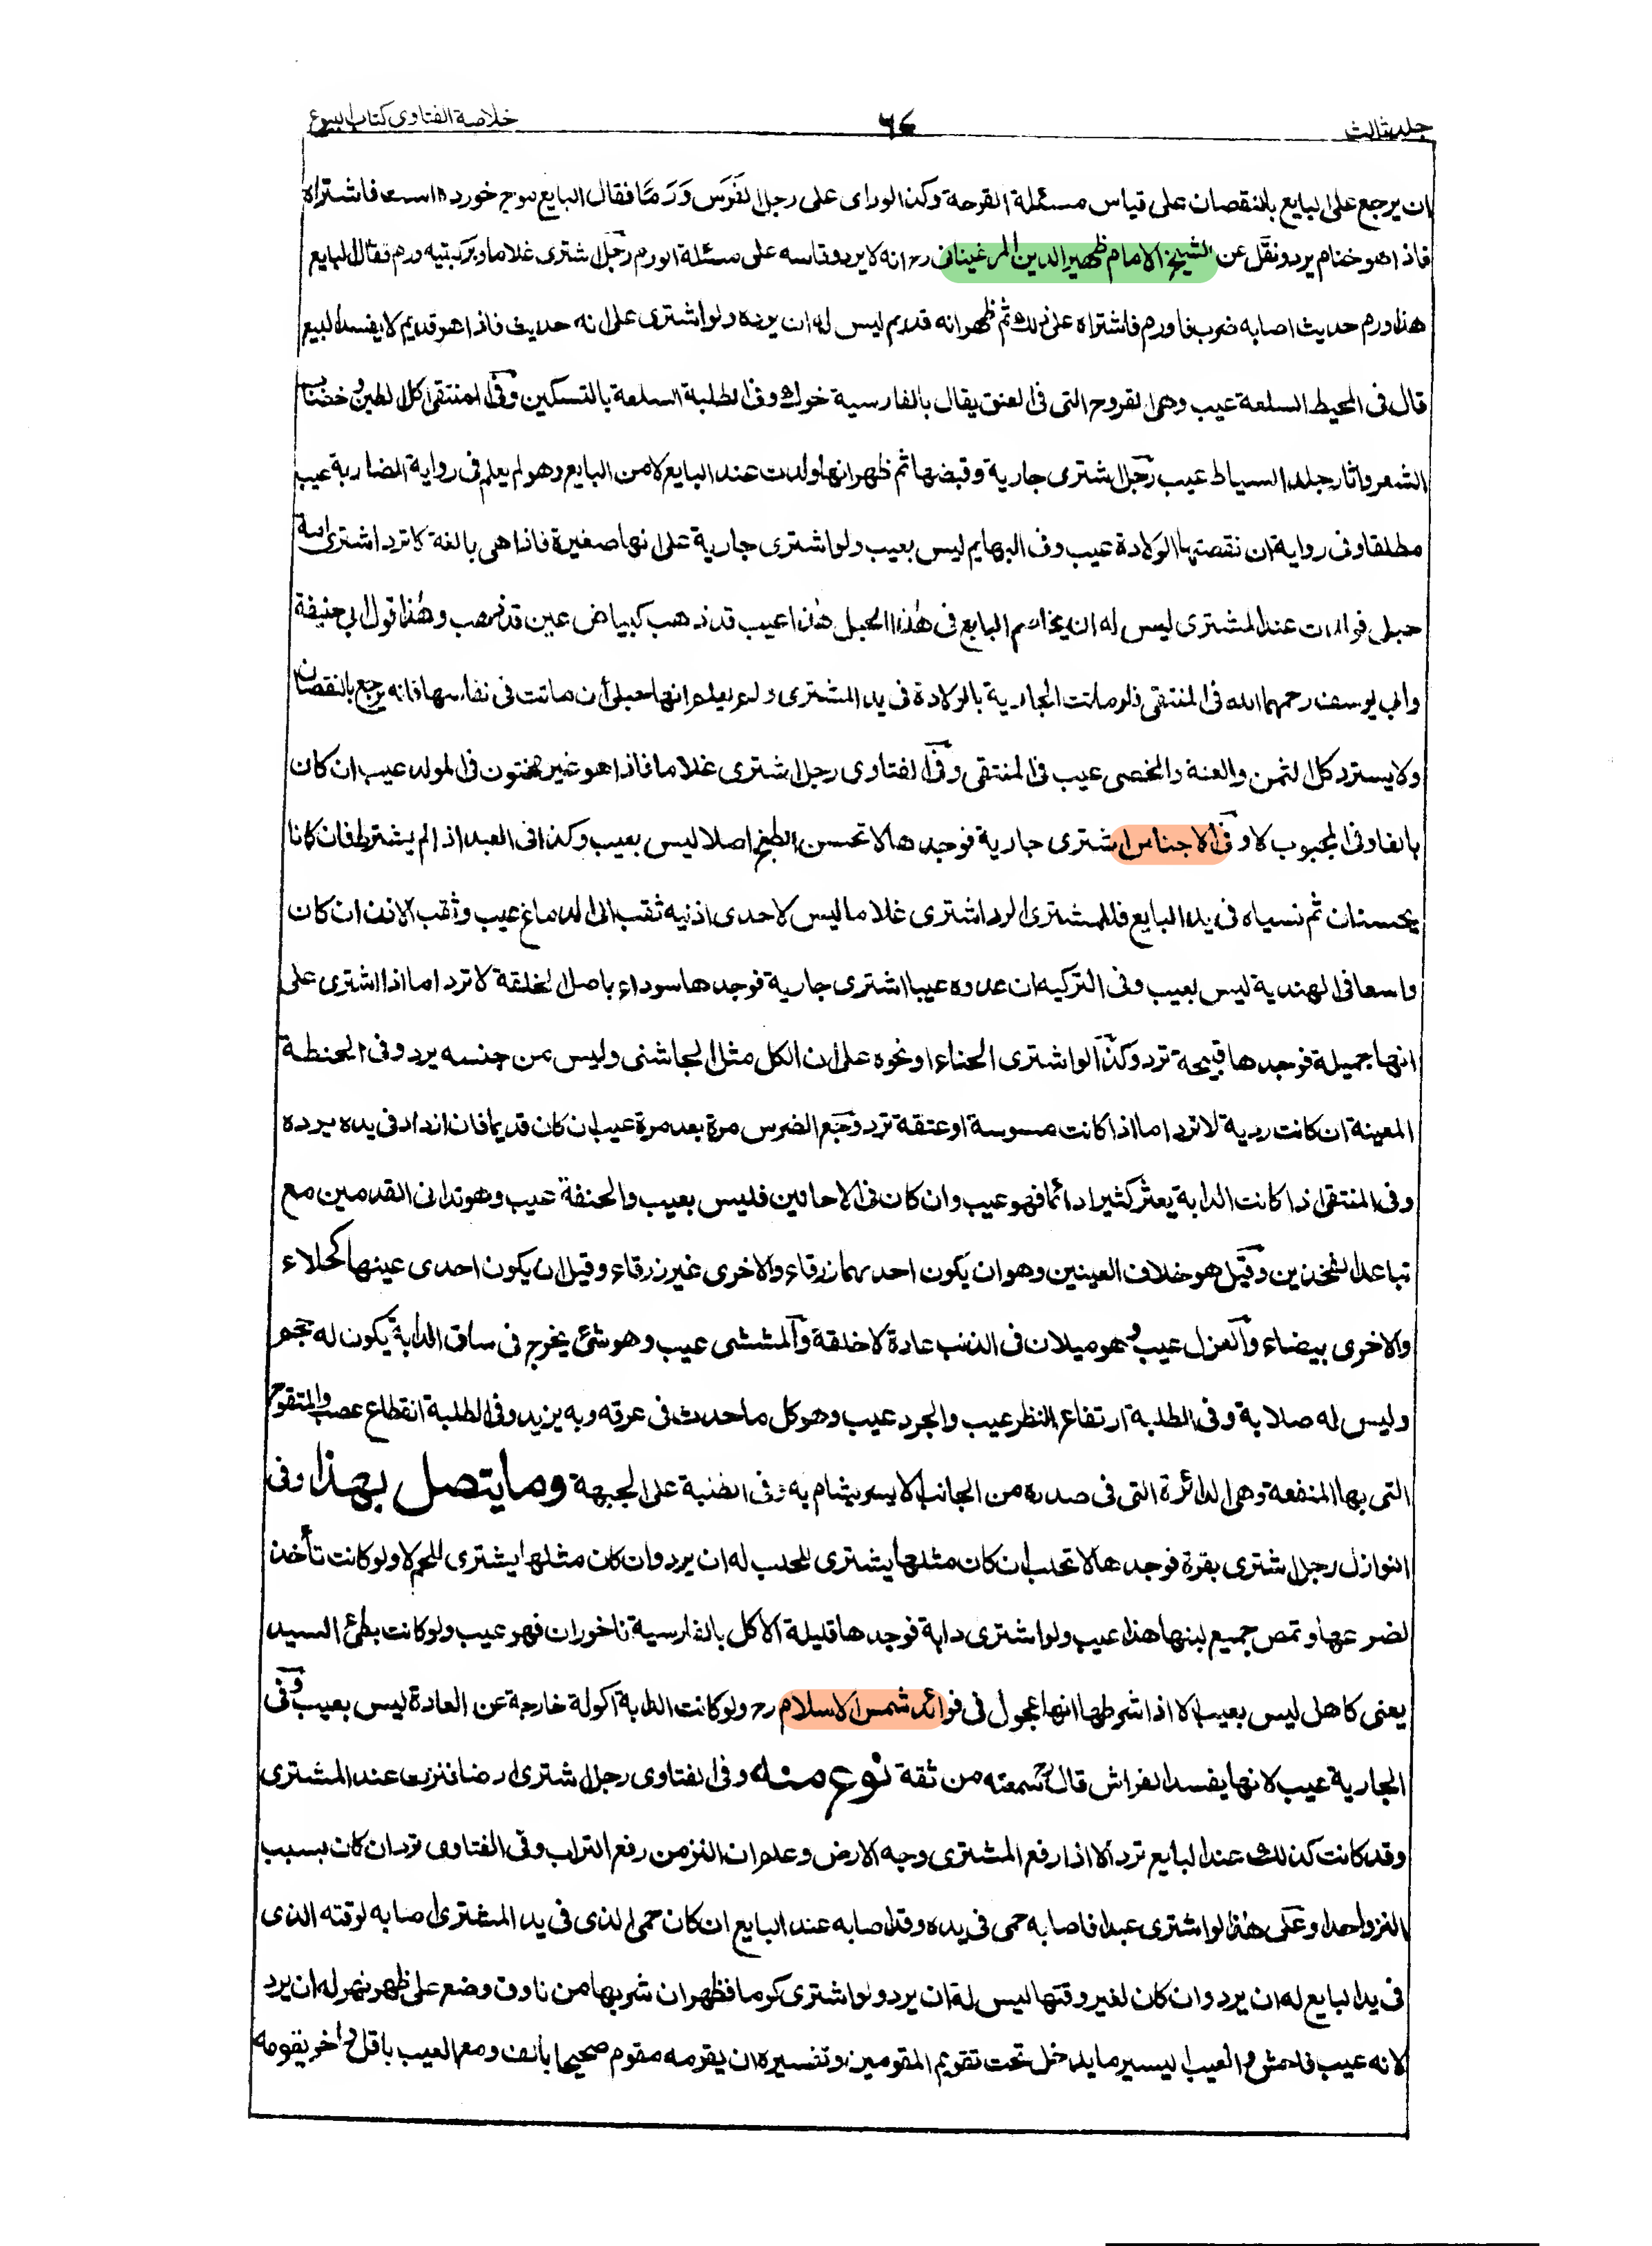 جلد ثالث
٦٧
خلاصة الفتاوى كتاب البيوع
ان يرجع على البايع بالنقصان على قياس مسئلة القرحة وكذا لو راى على رجل الفرس ورما فقال البايع موج خورده است فاشتراه
فاذا هو خنام يرد ونقل عن الشيخ الامام ظهير الدين المرغينانى رح انه لا يرد وقاسه على مسئلة الورم رجل اشترى غلاما وبركبتيه ورم فقال البايع
هذا ورم حديث اصابه ضرب فاورم فاشتراه على ذلك ثم ظهر انه قديم ليس له ان يرده ولو اشترى على انه حديث فاذا هو قديم لا يفسد البيع
قال فى المحيط السلعة عيب وهى القروح التى فى العنق يقال بالفارسية خوك وفى الطلبة السلعة بالتسكين وفى المنتقى اكل الطين وخضاب
الشعر واثار جلد السياط عيب رجل اشترى جارية وقبضها ثم ظهر انها ولدت عند البايع لا من البايع وهو لم يعلم فى رواية المضاربة عيب
مطلقا وفى رواية ان نقصتها الولادة عيب وفى البهايم ليس بعيب ولو اشترى جارية على انها صغيرة فاذا هى بالغة لا ترد اشترى امة
حبلى فولدت عند المشترى ليس له ان يخاصم البايع فى هذا الحبل هذا عيب قد ذهب كبياض عين قد ذهب وهذا قول ابى حنيفة
وابى يوسف رحمهما الله فى المنتقى فلو ماتت الجارية بالولادة فى يد المشترى ولم يعلم انها حبلى أن ماتت فى نفاسها فانه يرجع بالنقصان
ولا يسترد كل الثمن والعنة والخصى عيب فى المنتقى وفى الفتاوى رجل اشترى غلاما فاذا هو غير مختون فى المولد عيب ان كان
بالغا وفى المجبوب لا وفى الاجناس اشترى جارية فوجدها لا تحسن الطبخ اصلا ليس بعيب وكذا فى العبد اذا لم يشترط فان كانا
يحسنان ثم نسياه فى يد البايع فللمشترى الرد اشترى غلاما ليس لاحدى اذنيه ثقب الى الدماغ عيب وثقب الاذن ان كان
واسعا فى الهندية ليس بعيب وفى التركيه ان عدوه عيبا اشترى جارية فوجدها سوداء باصل الخلقة لا ترد اما اذا اشترى على
انها جميلة فوجدها قبيحة ترد وكذا لو اشترى الحناء او نحوه على ان الكل مثل الجاشنى وليس من جنسه يرد وفى الحنطة
المعينة ان كانت ردية لا ترد اما اذا كانت مسوسة او عتقة ترد وجع الضرس مرة بعد مرة عيب ان كان قديما فان ازداد فى يده يرده
وفى المنتقى اذا كانت الدابة يعثر كثيرا دائما فهو عيب وان كان فى الاحانين فليس بعيب والحنفة عيب وهو تدانى القدمين مع
تباعد الفخذين وقيل هو خلاف العينين وهو ان يكون احدىهما زرقاء والاخرى غير زرقاء وقيل ان يكون احدى عينها كحلاء
والاخرى بيضاء والعزل عيب وهو ميلان فى الذنب عادة لا خلقة والمشش عيب وهو شئ يخرج فى ساق الدابة يكون له حجم
وليس له صلابة وفى الطلبة ارتفاع النظر عيب والجرد عيب وهو كل ما حدث فى عرقه وبه يزيد وفى الطلبة انقطاع عصب والمتقوح
التى بها المنفعة وهى الدائرة التى فى صدره من الجانب الايسر يشام به وفى الطلبة على الجبهة وما يتصل بهذا وفى
النوازل رجل اشترى بقرة فوجدها لا تحلب ان كان مثلها يشترى للحلب له ان يرد وان كان مثلها يشترى للحم لا ولو كانت تأخذ
لضرعها وتمص جميع لبنها هذا عيب ولو اشترى دابة فوجدها قليلة الاكل بالفارسية ناخوران فهو عيب ولو كانت بطئ السير
يعنى كاهل ليس بعيب الا اذا شرطها انها عجول فى فوائد شمس الاسلام رح ولو كانت الدابة اكولة خارجة عن العادة ليس بعيب وفى
الجارية عيب لانها يفسد الفراش قال رح سمعته من ثقة نوع منه وفى الفتاوى رجل اشترى ارضا فنزت عند المشترى
وقد كانت كذلك عند البايع ترد الا اذا رفع المشترى وجه الارض وعلم ان النز من رفع التراب وفى الفتاوى ترد ان كان بسبب
النز واحدا وعلى هذا لو اشترى عبدا فاصابه حمى فى يده وقد اصابه عند البايع ان كان حمى الذى فى يد المشترى اصابه لوقته الذى
فى يد البايع له ان يرد وان كان لغير وقتها ليس له ان يرد ولو اشترى كرما فظهر ان شربها من ناوق وضع على ظهر نهر له ان يرد
لانه عيب فاحش والعيب اليسير ما يدخل تحت تقويم المقومين وتفسيره ان يقومه مقوم صحيحا بألف ومع العيب باقل واخر يقومه